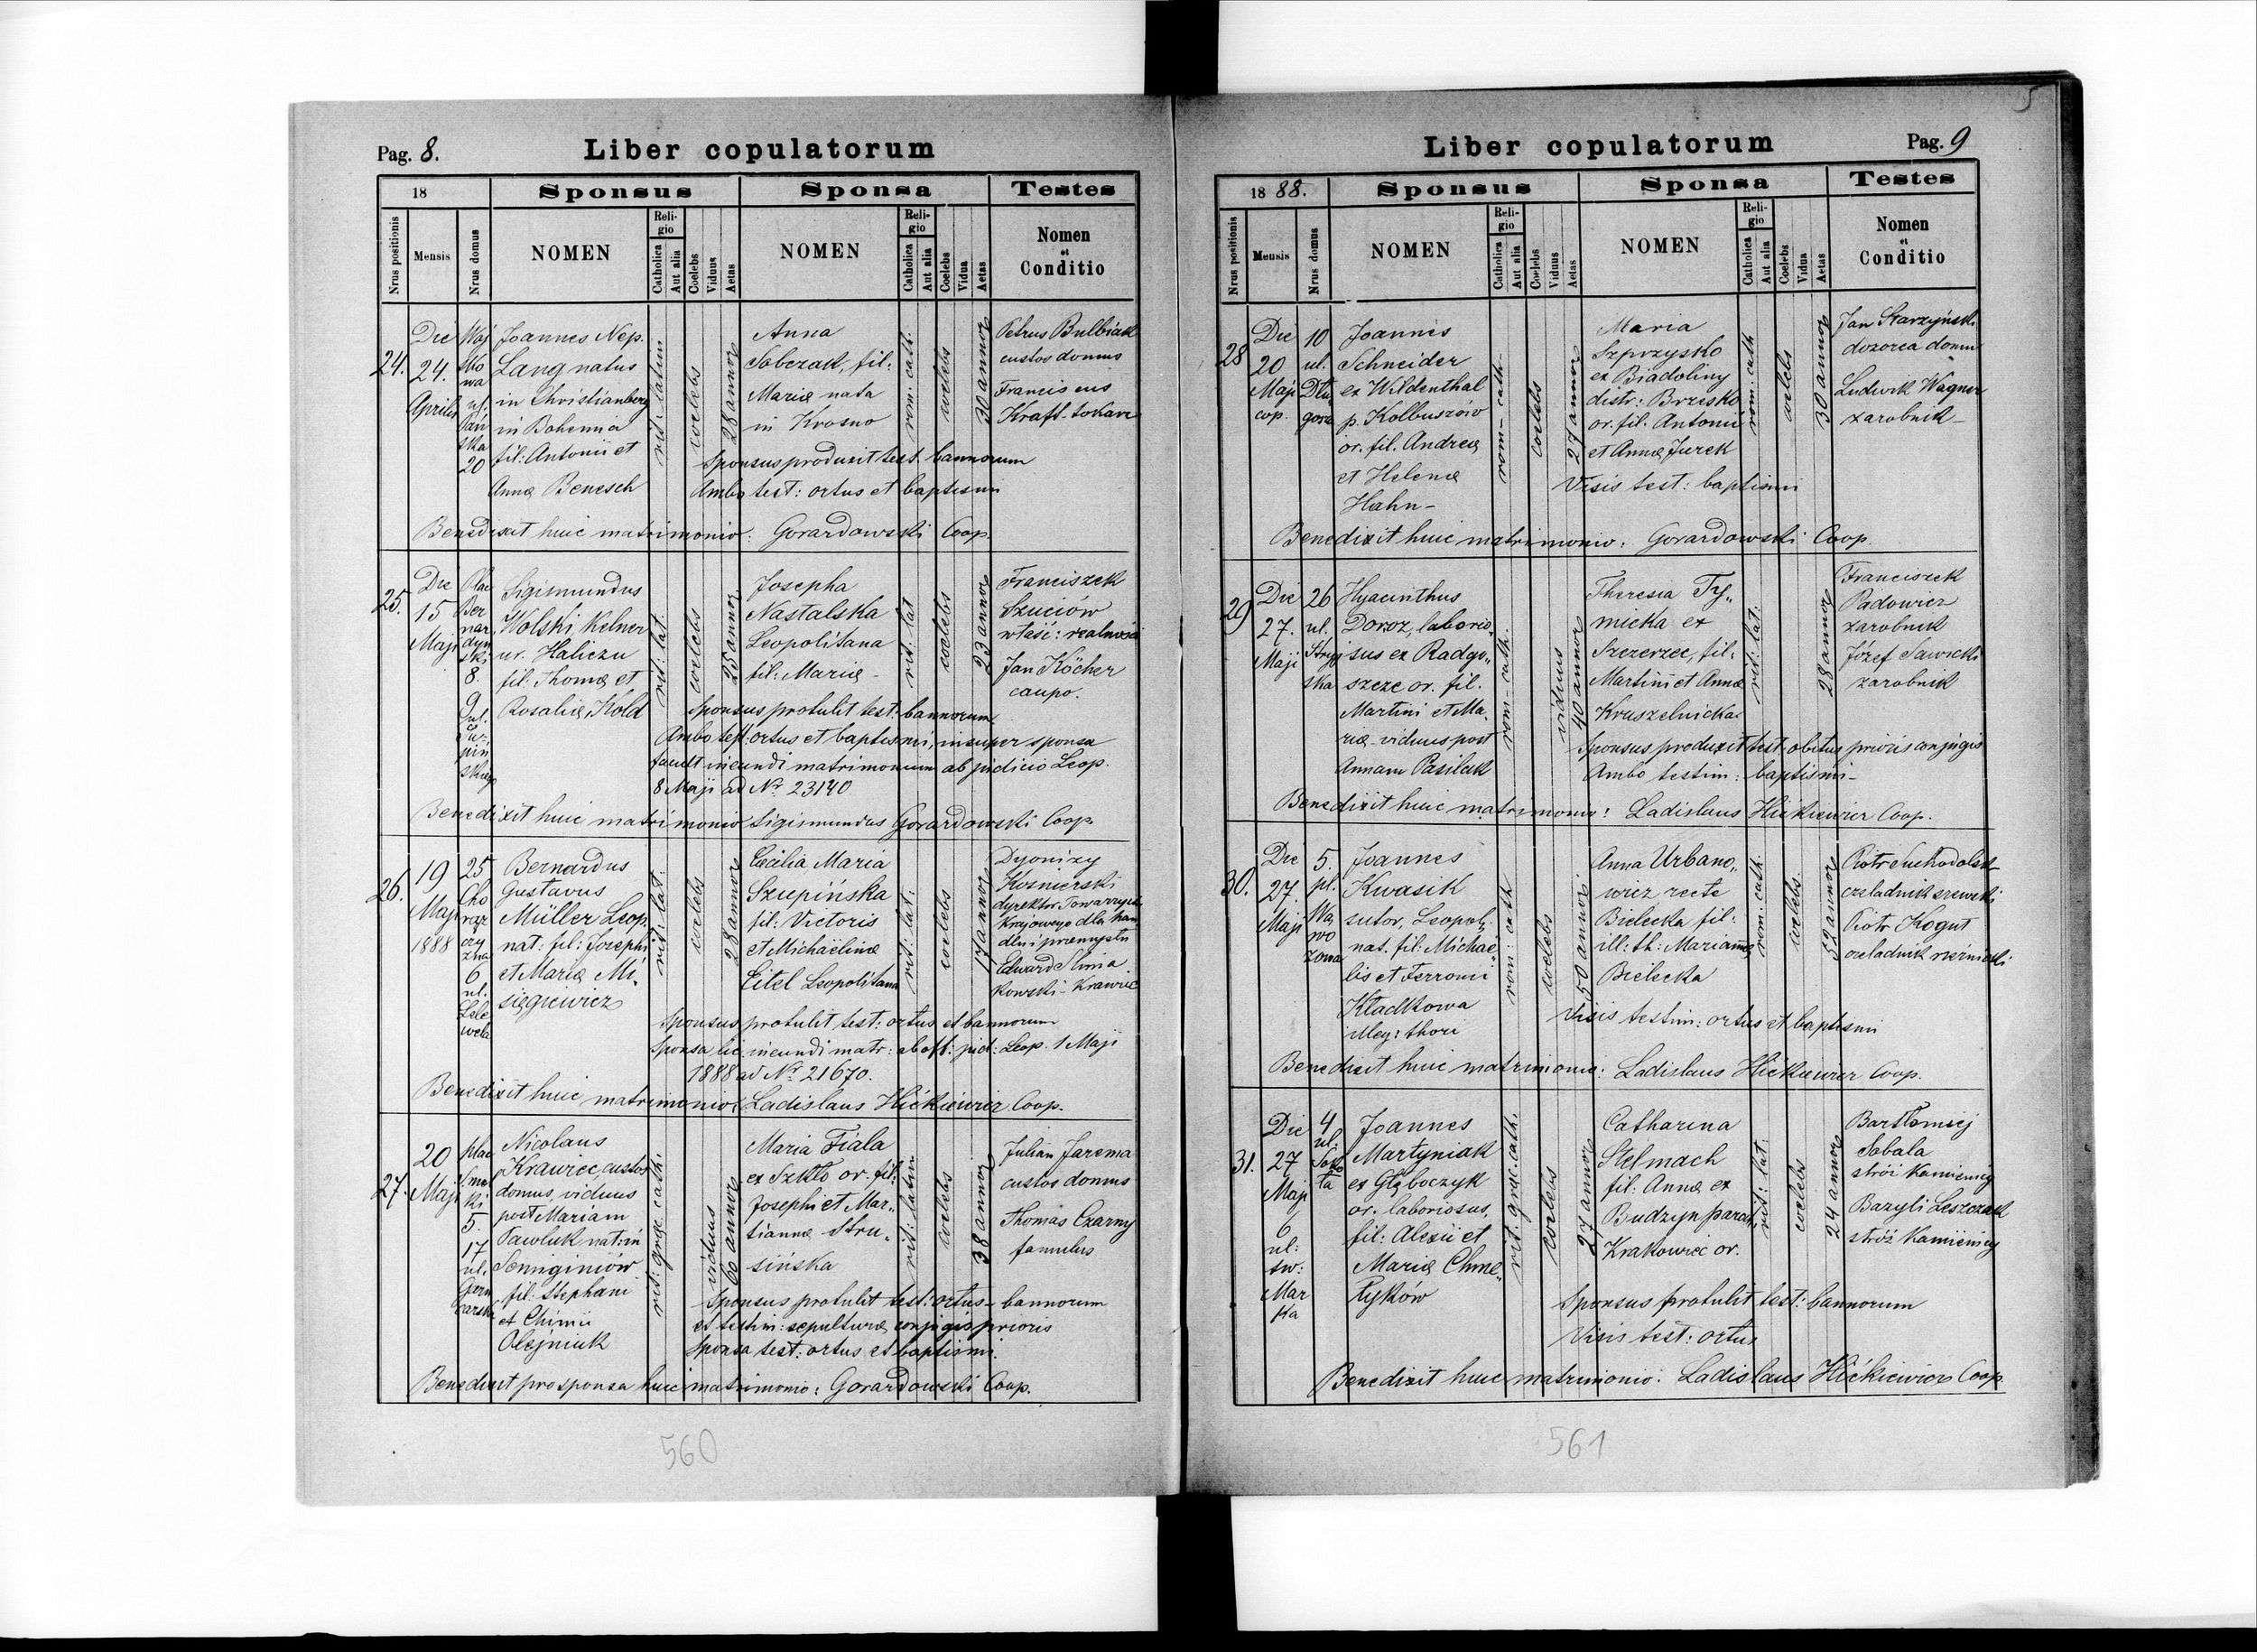 Pag. 8.
Liber copulatorum
18
Sponsus
Sponsa
Testes
Nrus positionis
Mensis
Nrus domus
NOMEN
Religio
Catholica
Aut alia
Coelebs
Viduus
Aetas
NOMEN
Religio
Catholica
Aut alia
Coelebs
Vidua
Aetas
Nomen
et
Conditio
24.
Die
24.
Aprilis
Joannes Nep.
Lang natus
in Christianberg
in Bohemia
fil: Antonii et
Annæ Benesch
rit: latini
coelebs
28 annor
Anna
Sobczak, fil:
Mariæ nata
in Krosno
rom: cath:
coelebs
30 annor
Petrus Bulbiak
custos domus
Franciscus
Kraft - tokarz
Sponsus produxit test. bannorum
Ambo test: ortus et baptismi
Benedixit huic matrimonio: Gorardowski Coop.
25.
Die
15
Maji
Plac
Ber
nar
dyń
ski
8.
Sigismundus
Wolski, Kelner
ur. Haliczu
fil: Thomæ et
Rosaliæ Kold
rit: lat.
coelebs
25 annor
Josepha
Nastalska
Leopolitana
fil: Mariæ
rit: lat
coelebs
23 annor
Franciszek
Szuciów
właść: realności
Jan Köcher
caupo.
Sponsus protulit test. bannorum
Ambo test: ortus et baptismi, insuper sponsa
facult ineundi matrimonium ab judicio Leop.
8 Maji ad Nr. 23140
Benedixit huic matrimonio Sigismundus Gorardowski Coop.
26.
19
Maji
1888
25
Cho
rąż
czy
zna
6
ul.
Lele
wela
Bernardus
Gustavus
Müller Leop.
nat: fil: Josephi
et Mariæ Mi,
sięgiewicz
rit: lat:
coelebs
28 annor
Cecilia Maria
Szupińska
fil: Victoris
et Michaëlinæ
Eitel Leopolitana
rit: lat:
coelebs
17 annor
Dyonizy
Kośnierski
dyrektor Towarzyst.
Krajowego dla han
dlu i przemysłu
Edward Słma
kowski - Krawiec
Sponsus protulit test: ortus et bannorum
Sponsa lic. ineundi matr: ab off: jud: Leop. 1 Maji
1888 ad Nr. 21670.
Benedixit huic matrimonio: Ladislaus Hićkiewicz Coop.
27.
20
Maji
5.
17
ul.
Garn
carska
Nicolaus
Krawiec, custos
domus, viduus
post Mariam
Pawluk nat: in
Semiginiów
fil: Stephani
et Chimii
Olejniuk
rit: græc cath.
viduus
60 annor
Maria Fiala
ex Szkło or. fil:
Josephi et Mar,,
tiannæ Stru,
sińska
rit: latini
coelebs
38 annor
Julian Jarema
custos domus
Thomas Czarny
famulus
Sponsus protulit test: ortus - bannorum
et testim: sepulturæ conjugis prioris
Sponsa test: ortus et baptismi.
Benedixit pro sponsa huic matrimonio: Gorardowski Coop.
560
5
Liber copulatorum
Pag. 9
18 88.
Sponsus
Sponsa
Testes
Nrus positionis
Mensis
Nrus domus
NOMEN
Religio
Catholica
Aut alia
Coelebs
Viduus
Aetas
NOMEN
Religio
Catholica
Aut alia
Coelebs
Vidua
Aetas
Nomen
et
Conditio
28
Die
20
Maji
cop.
10
ul.
Dłu
gora
Joannes
Schneider
ex Wildenthal
p. Kolbuszów
or. fil. Andreæ
et Helenæ
Hahn -
rom - cath.
coelebs
27 annor
Maria
Szprzysko
ex Biadoliny
distr: Brzesko
or. fil. Antonii
et Annæ Jurek
rom: cath
coelebs
30 annor
Jan Starzyński
dozorca domu
Ludwik Wagner
zarobnik -
Visis test: baptismi
Benedixit huic matrimonio: Gorardowski Coop.
29
Die
27.
Maji
26
ul.
Stryj
ska
Hyacinthus
Doroz, laborio,
sus ex Radgo,,
szcze or. fil.
Martini et Ma,
riæ viduus post
Annam Pasilak
rom - cath.
viduus
40 annor
Theresia Ty,,
micka ex
Szczerzec, fil:
Martini et Annæ
Kruszelnicka
rit: lat:
28 annor
Franciszek
Padowicz
zarobnik
Józef Sawicki
zarobnik
Sponsus produxit test. obitus prioris conjugis
Ambo testim: baptismi -
Benedixit huic matrimonio: Ladislaus Hićkiewicz Coop.
30.
Die
27.
Maji
5.
pl.
Joannes
Kwasik
sutor, Leopoli
nat. fil: Michaë,
lis et Ferronii
Kładkowa
illeg: thori
rom: cath
coelebs
50 annor.
Anna Urbano,,
wicz recte
Bielecka fil:
ill: th: Mariannæ
Bielecka
rom: cath
coelebs.
52 annor
Piotr Suchodolski
czeladnik szewski
Piotr Kogut
czeladnik rzeźnicki
Visis testim: ortus et baptismi
Benedixit huic matrimonio: Ladislaus Hićkiewicz Coop.
31.
Die
27
Maji
6
ul:
św:
Mar
ka
4
ul:
Soko
ła
Joannes
Martyniak
ex Głęboczyk
or. laboriosus,
fil: Alexii et
Mariæ Chme,,
łyków
rit: græc. cath.
coelebs
27 annor
Catharina
Stelmach
fil: Annæ ex
Budzyn paroch,
Krakowiec or.
rit: lat:
coelebs
24 annor
Bartłomiej
Sobala
stróż kamienicy
Bazyli Leszczak
stróż kamienicy
Sponsus protulit test: bannorum
Visis test: ortus
Benedixit huic matrimonio: Ladislaus Hićkiewicz Coop.
561